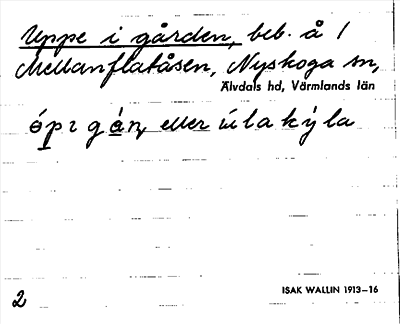 Uppe i gården, beb. å 1
Mellanflatåsen, Nyskoga sn,
Älvdals hd, Värmlands län
eller
2
ISAK WALLIN 1913–16